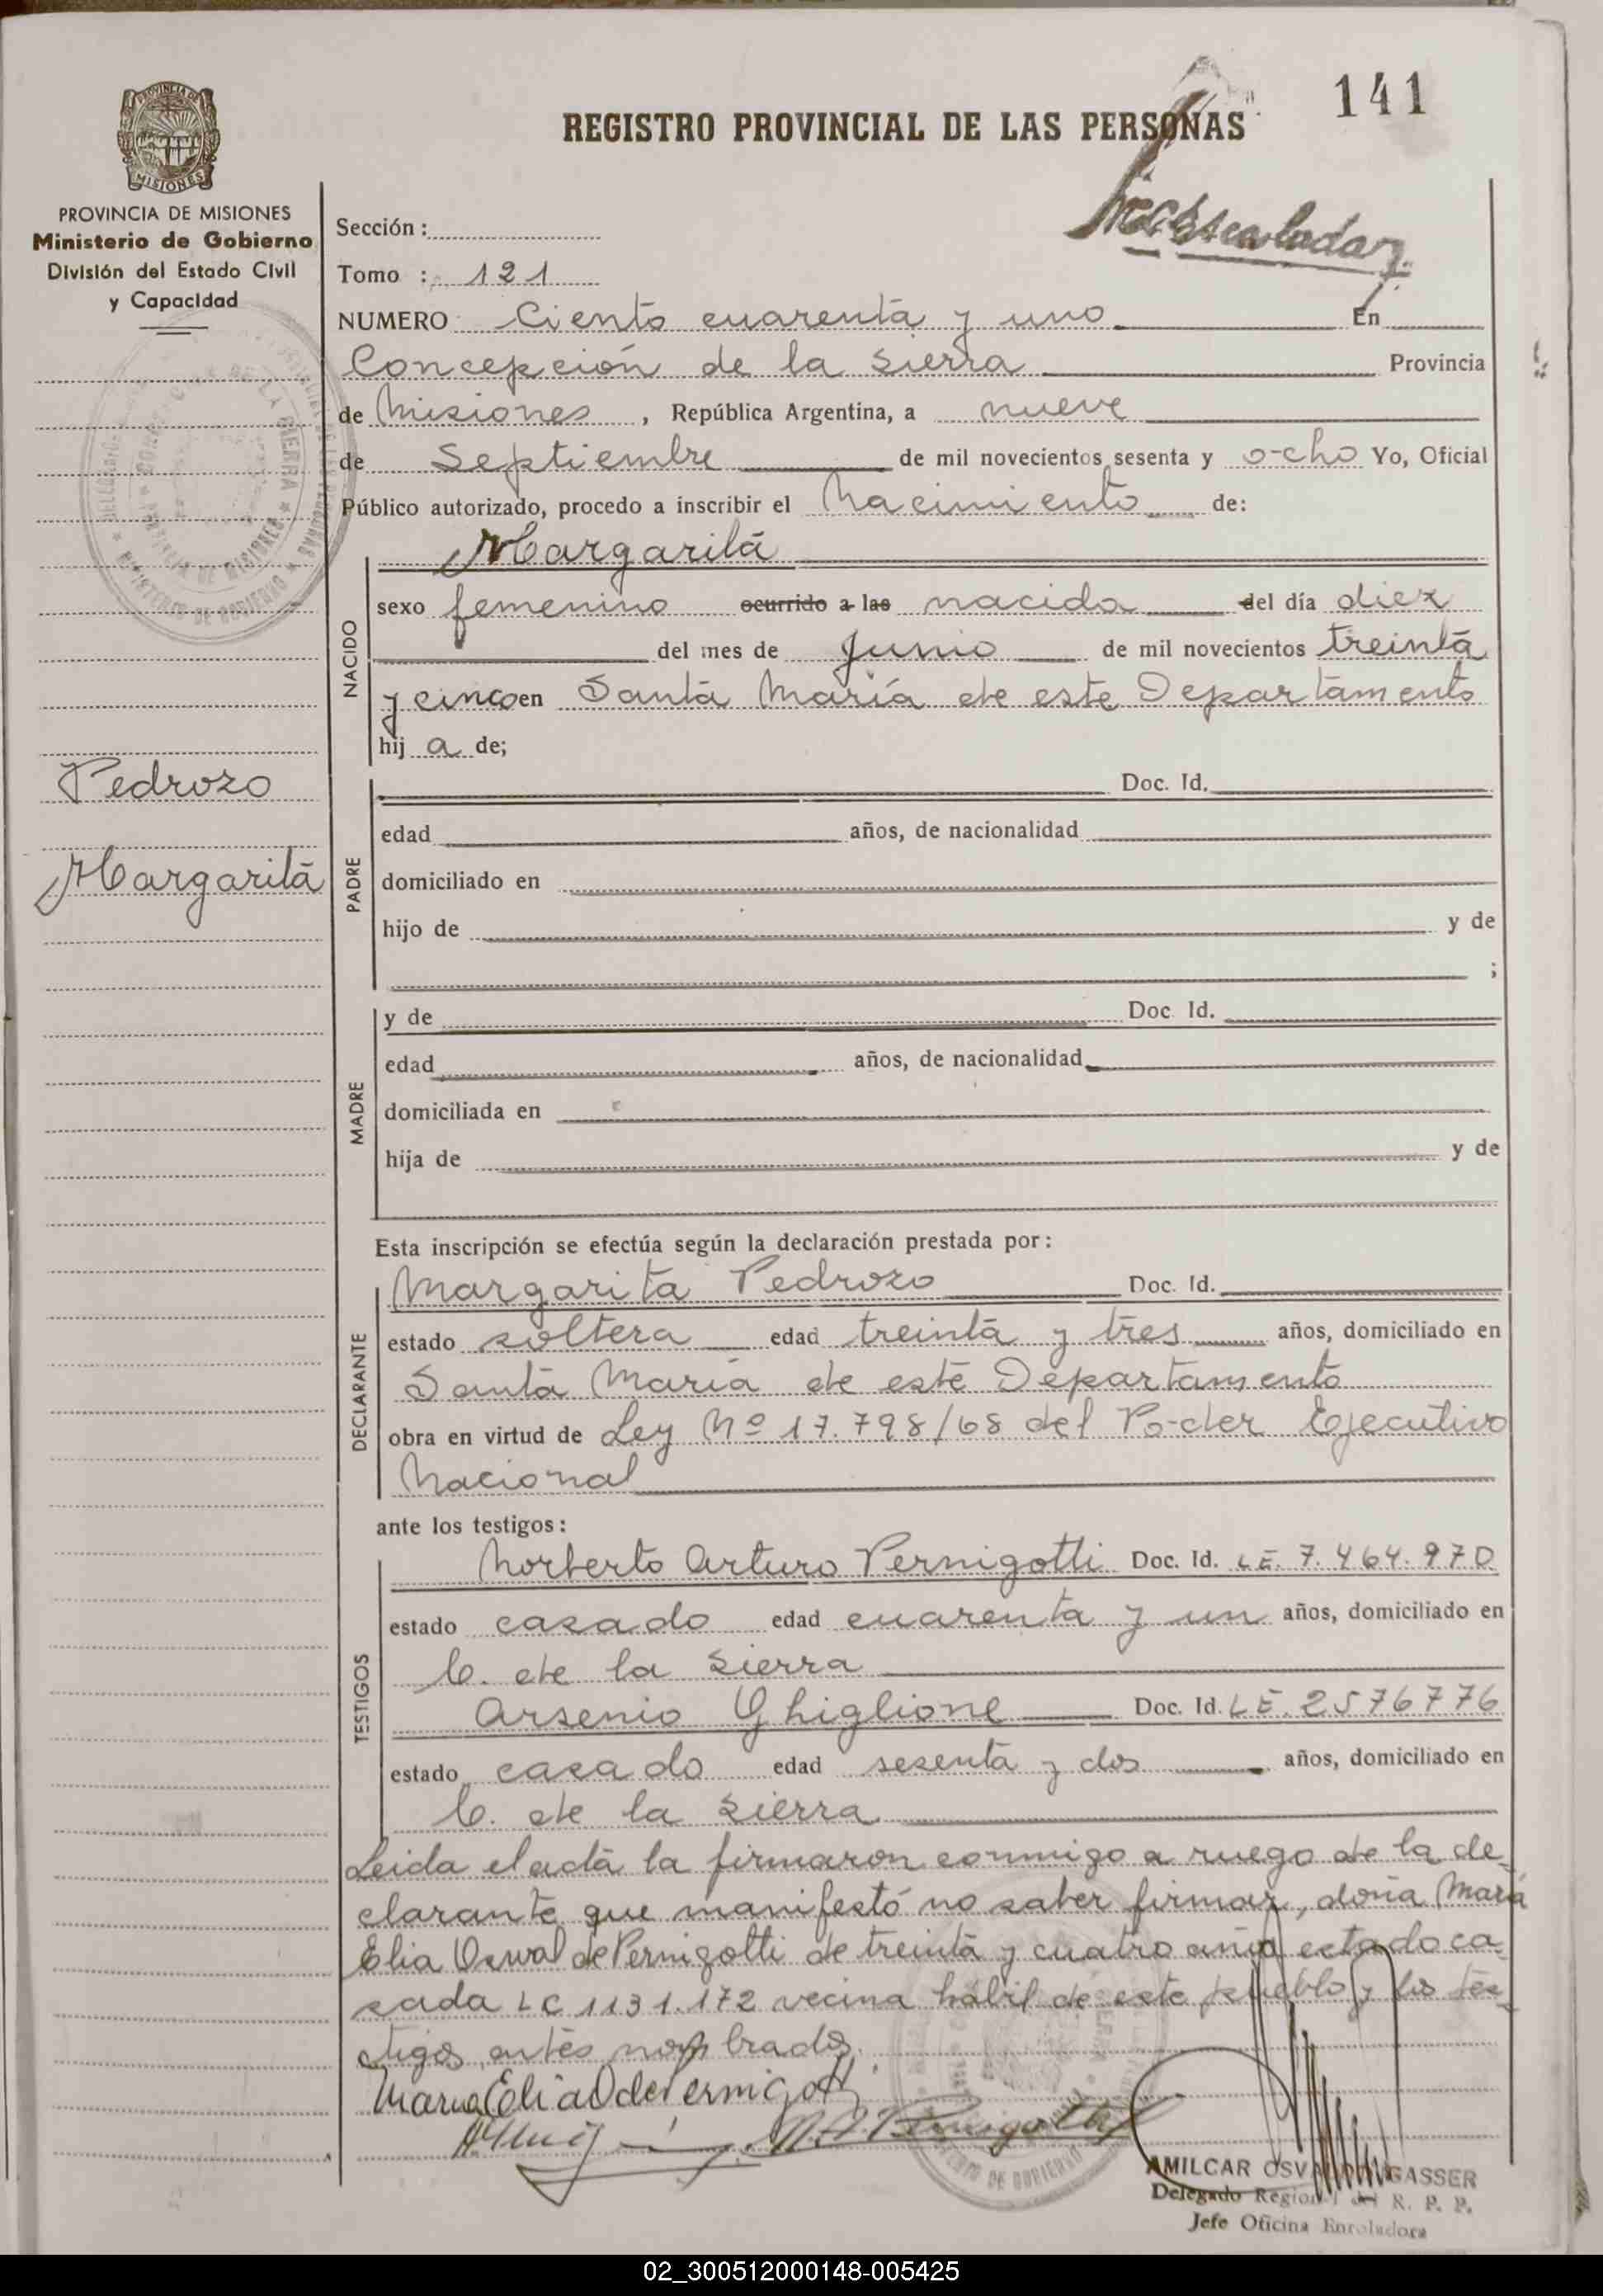 141
REGISTRO PROVINCIAL DE LAS PERSONAS
PROVINCIA DE
MISIONES
PROVINCIA DE MISIONES
Ministerio de Gobierno
División del Estado Civil
y Capacidad
Sección :
Tomo : 121
NUMERO Ciento cuarenta y uno En
Concepción de la Sierra Provincia
de Misiones , República Argentina, a nueve
de Septiembre de mil novecientos sesenta y ocho Yo, Oficial
Público autorizado, procedo a inscribir el Nacimiento de:
Margarita
NACIDO
sexo femenino ocurrido a las nacida del día diez
del mes de Junio de mil novecientos treinta
y cinco en Santa María de este Departamento
hij a de;
Pedrozo
Margarita
PADRE
Doc. Id.
edad años, de nacionalidad
domiciliado en
hijo de y de
;
MADRE
y de Doc. Id.
edad años, de nacionalidad
domiciliada en
hija de y de
Esta inscripción se efectúa según la declaración prestada por :
DECLARANTE
Margarita Pedrozo Doc. Id.
estado soltera edad treinta y tres años, domiciliado en
Santa María de este Departamento
obra en virtud de Ley Nº 17.798/68 del Poder Ejecutivo
Nacional
ante los testigos :
TESTIGOS
Norberto Arturo Pernigotti Doc. Id. LE. 7.464.970
estado casado edad cuarenta y un años, domiciliado en
C. de la Sierra
Arsenio Ghiglione Doc. Id. LE. 2576776
estado casado edad sesenta y dos años, domiciliado en
C. de la Sierra
Leida el acta la firmaron conmigo a ruego de la de-
clarante que manifestó no saber firmar, doña María
Elia de Pernigotti de treinta y cuatro años estado ca-
sada LC 1131.172 vecina hábil de este pueblo y los tes-
tigos antes nombrados.
Maria Elia O de Pernigotti
AMILCAR GASSER
Delegado Regional del R. P. P.
Jefe Oficina Enroladora
02_300512000148-005425